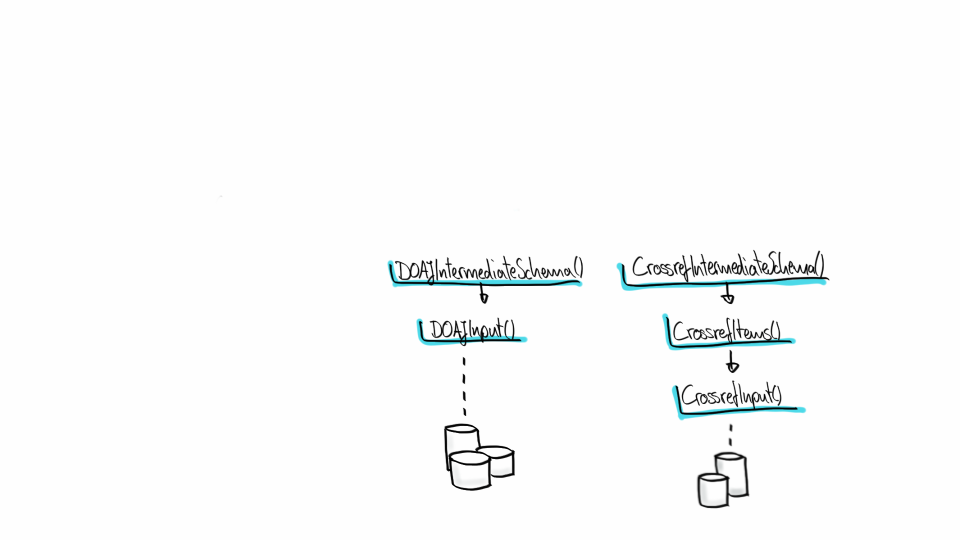 DOAJIntermediateSchema()
DOAJInput()
CrossrefIntermediateSchema()
CrossrefItems()
CrossrefInput()